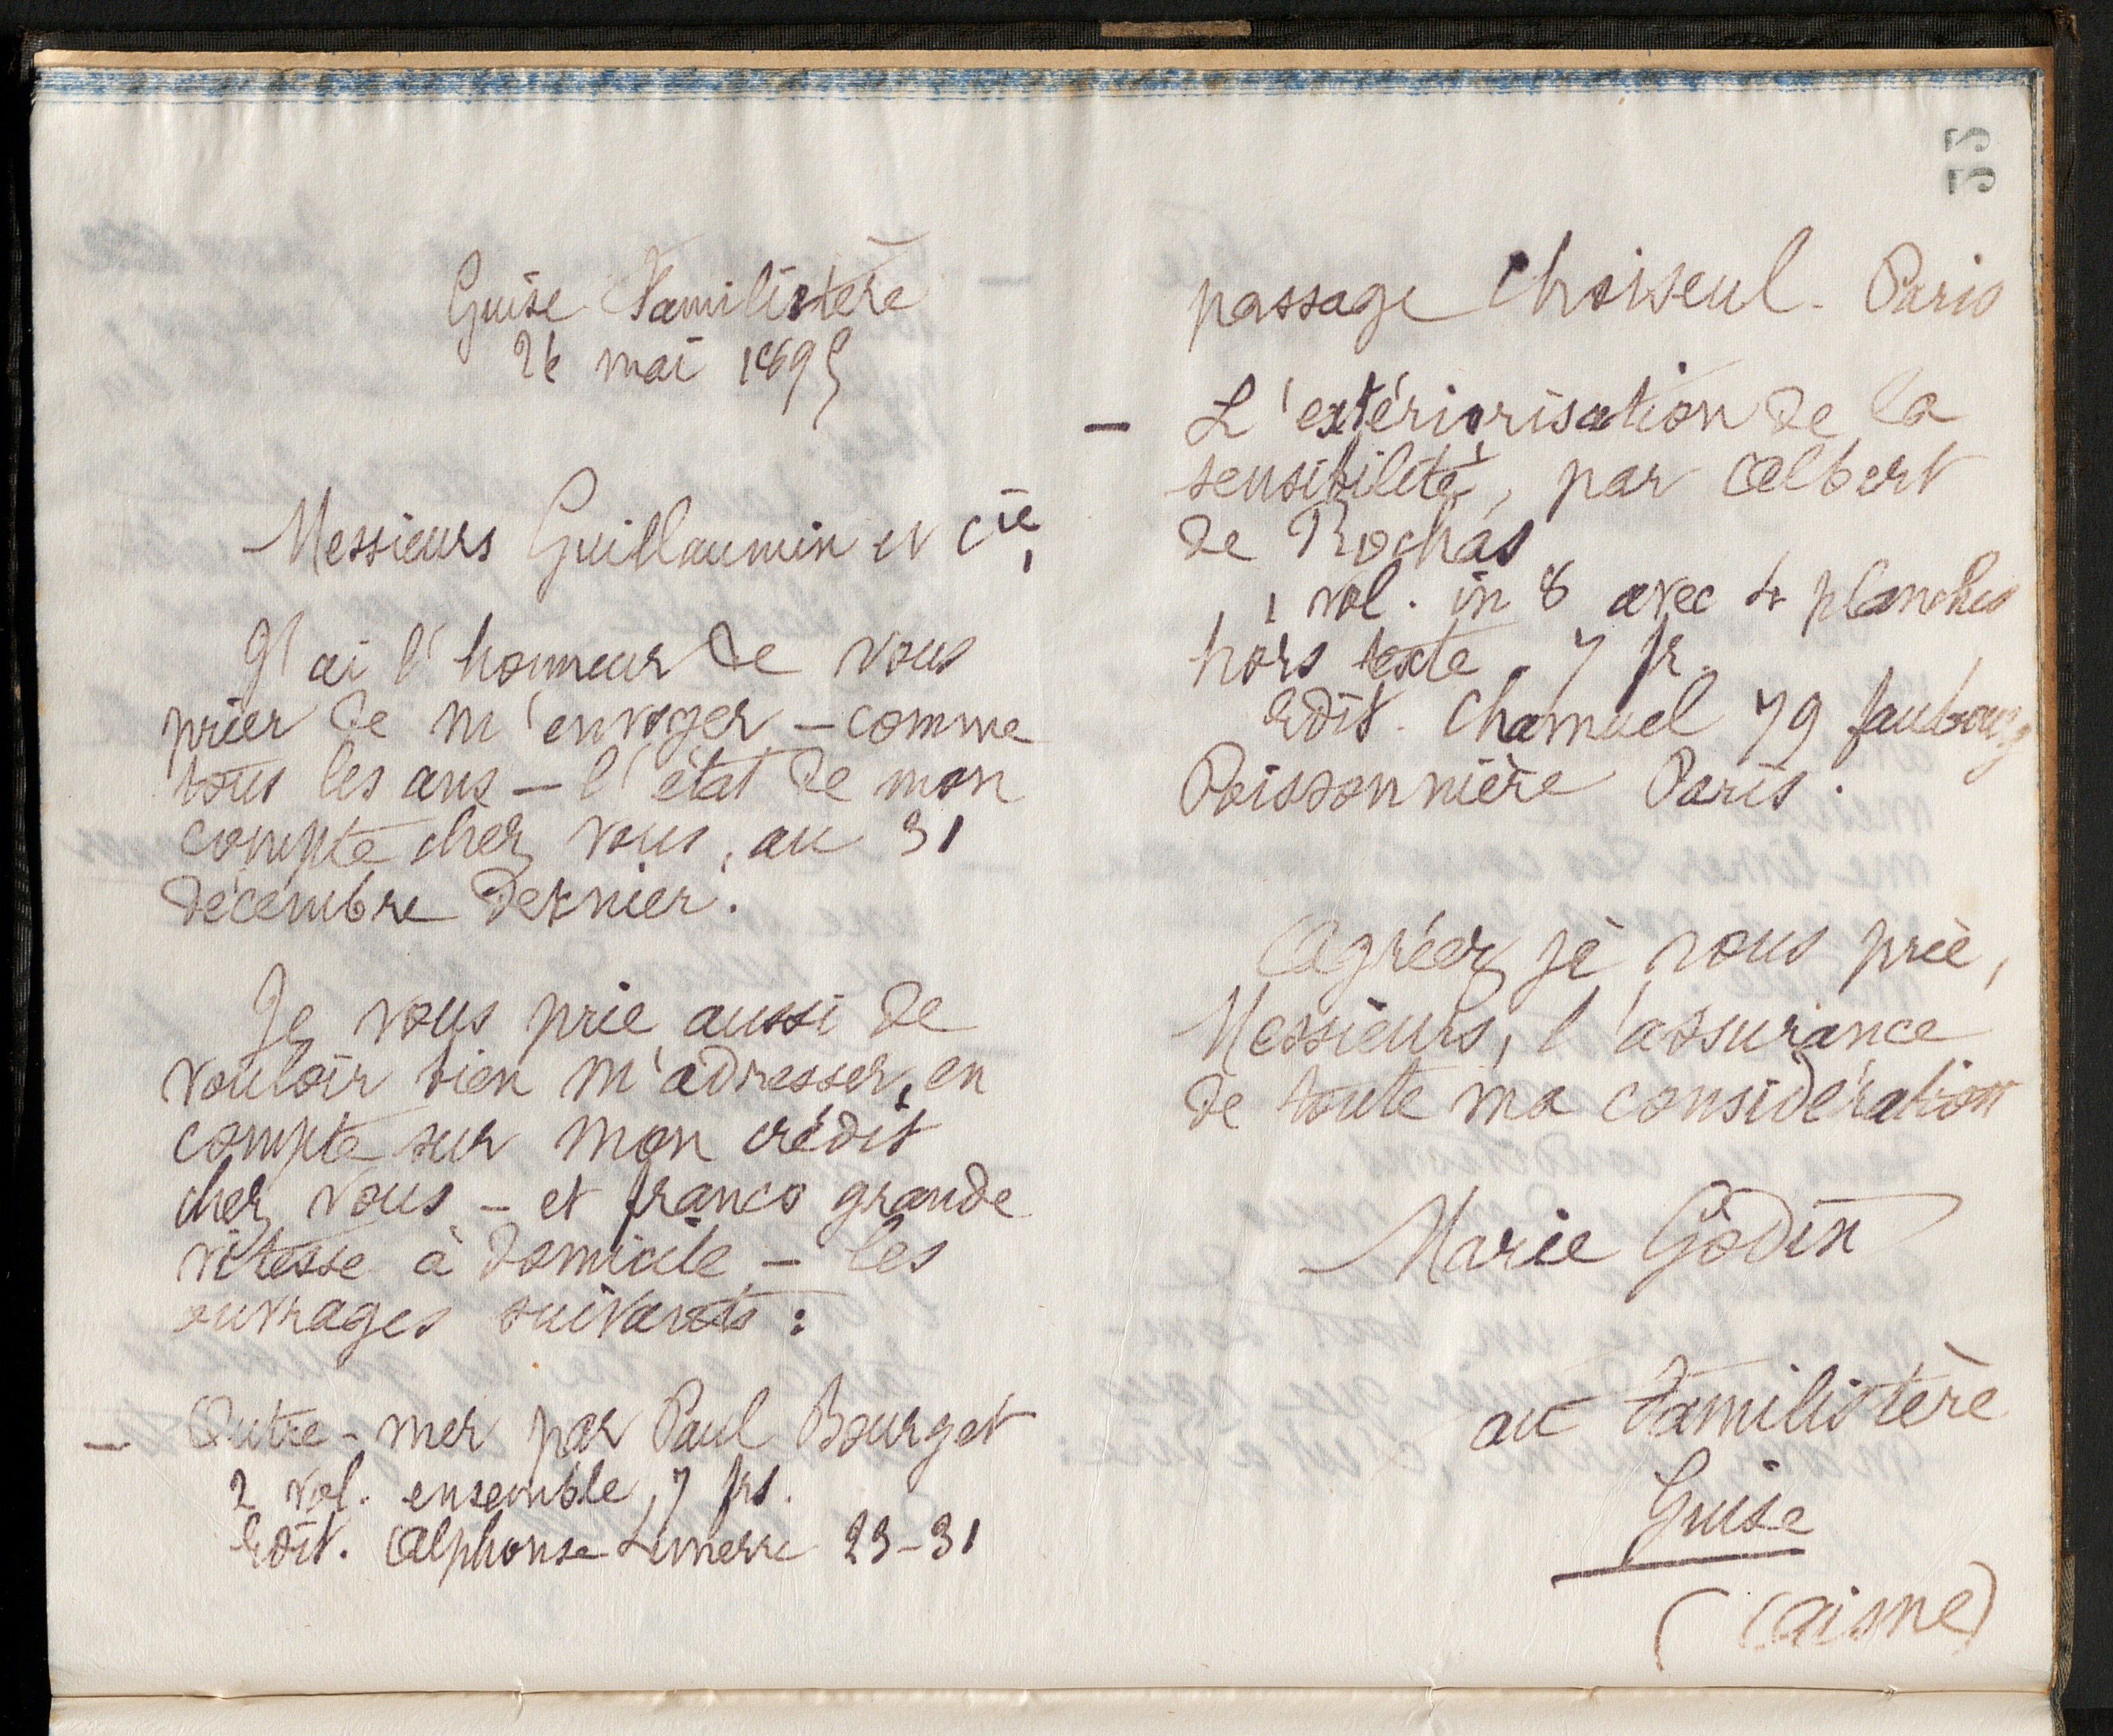 Guise Familistère
26 mai 1895
Messieurs Guillaumin et Cie,
J'ai l'honneur de vous
prier de m'envoyer – comme
tous les ans – l'état de mon
compte chez vous, au 31
décembre dernier.
Je vous prie aussi de
vouloir bien m'adresser, en
compte sur mon crédit
chez vous – et franco grande
vitesse à domicile – les
ouvrages suivants :
– Outre-mer par Paul Bourget
2 vol. ensemble, 7 frs.
Edit. Alphonse Lemerre 23-31
33
passage Choiseul. Paris
– L'extériorisation de la
sensibilité, par Albert
de Rochas
1 vol. in 8 avec 4 planches
hors texte. 7 fr.
Edit. Chamuel 79 faubourg
Poissonnière Paris.
Agréez, je vous prie,
Messieurs, l'assurance
de toute ma considération
Marie Godin
au Familistère
Guise
(Aisne)